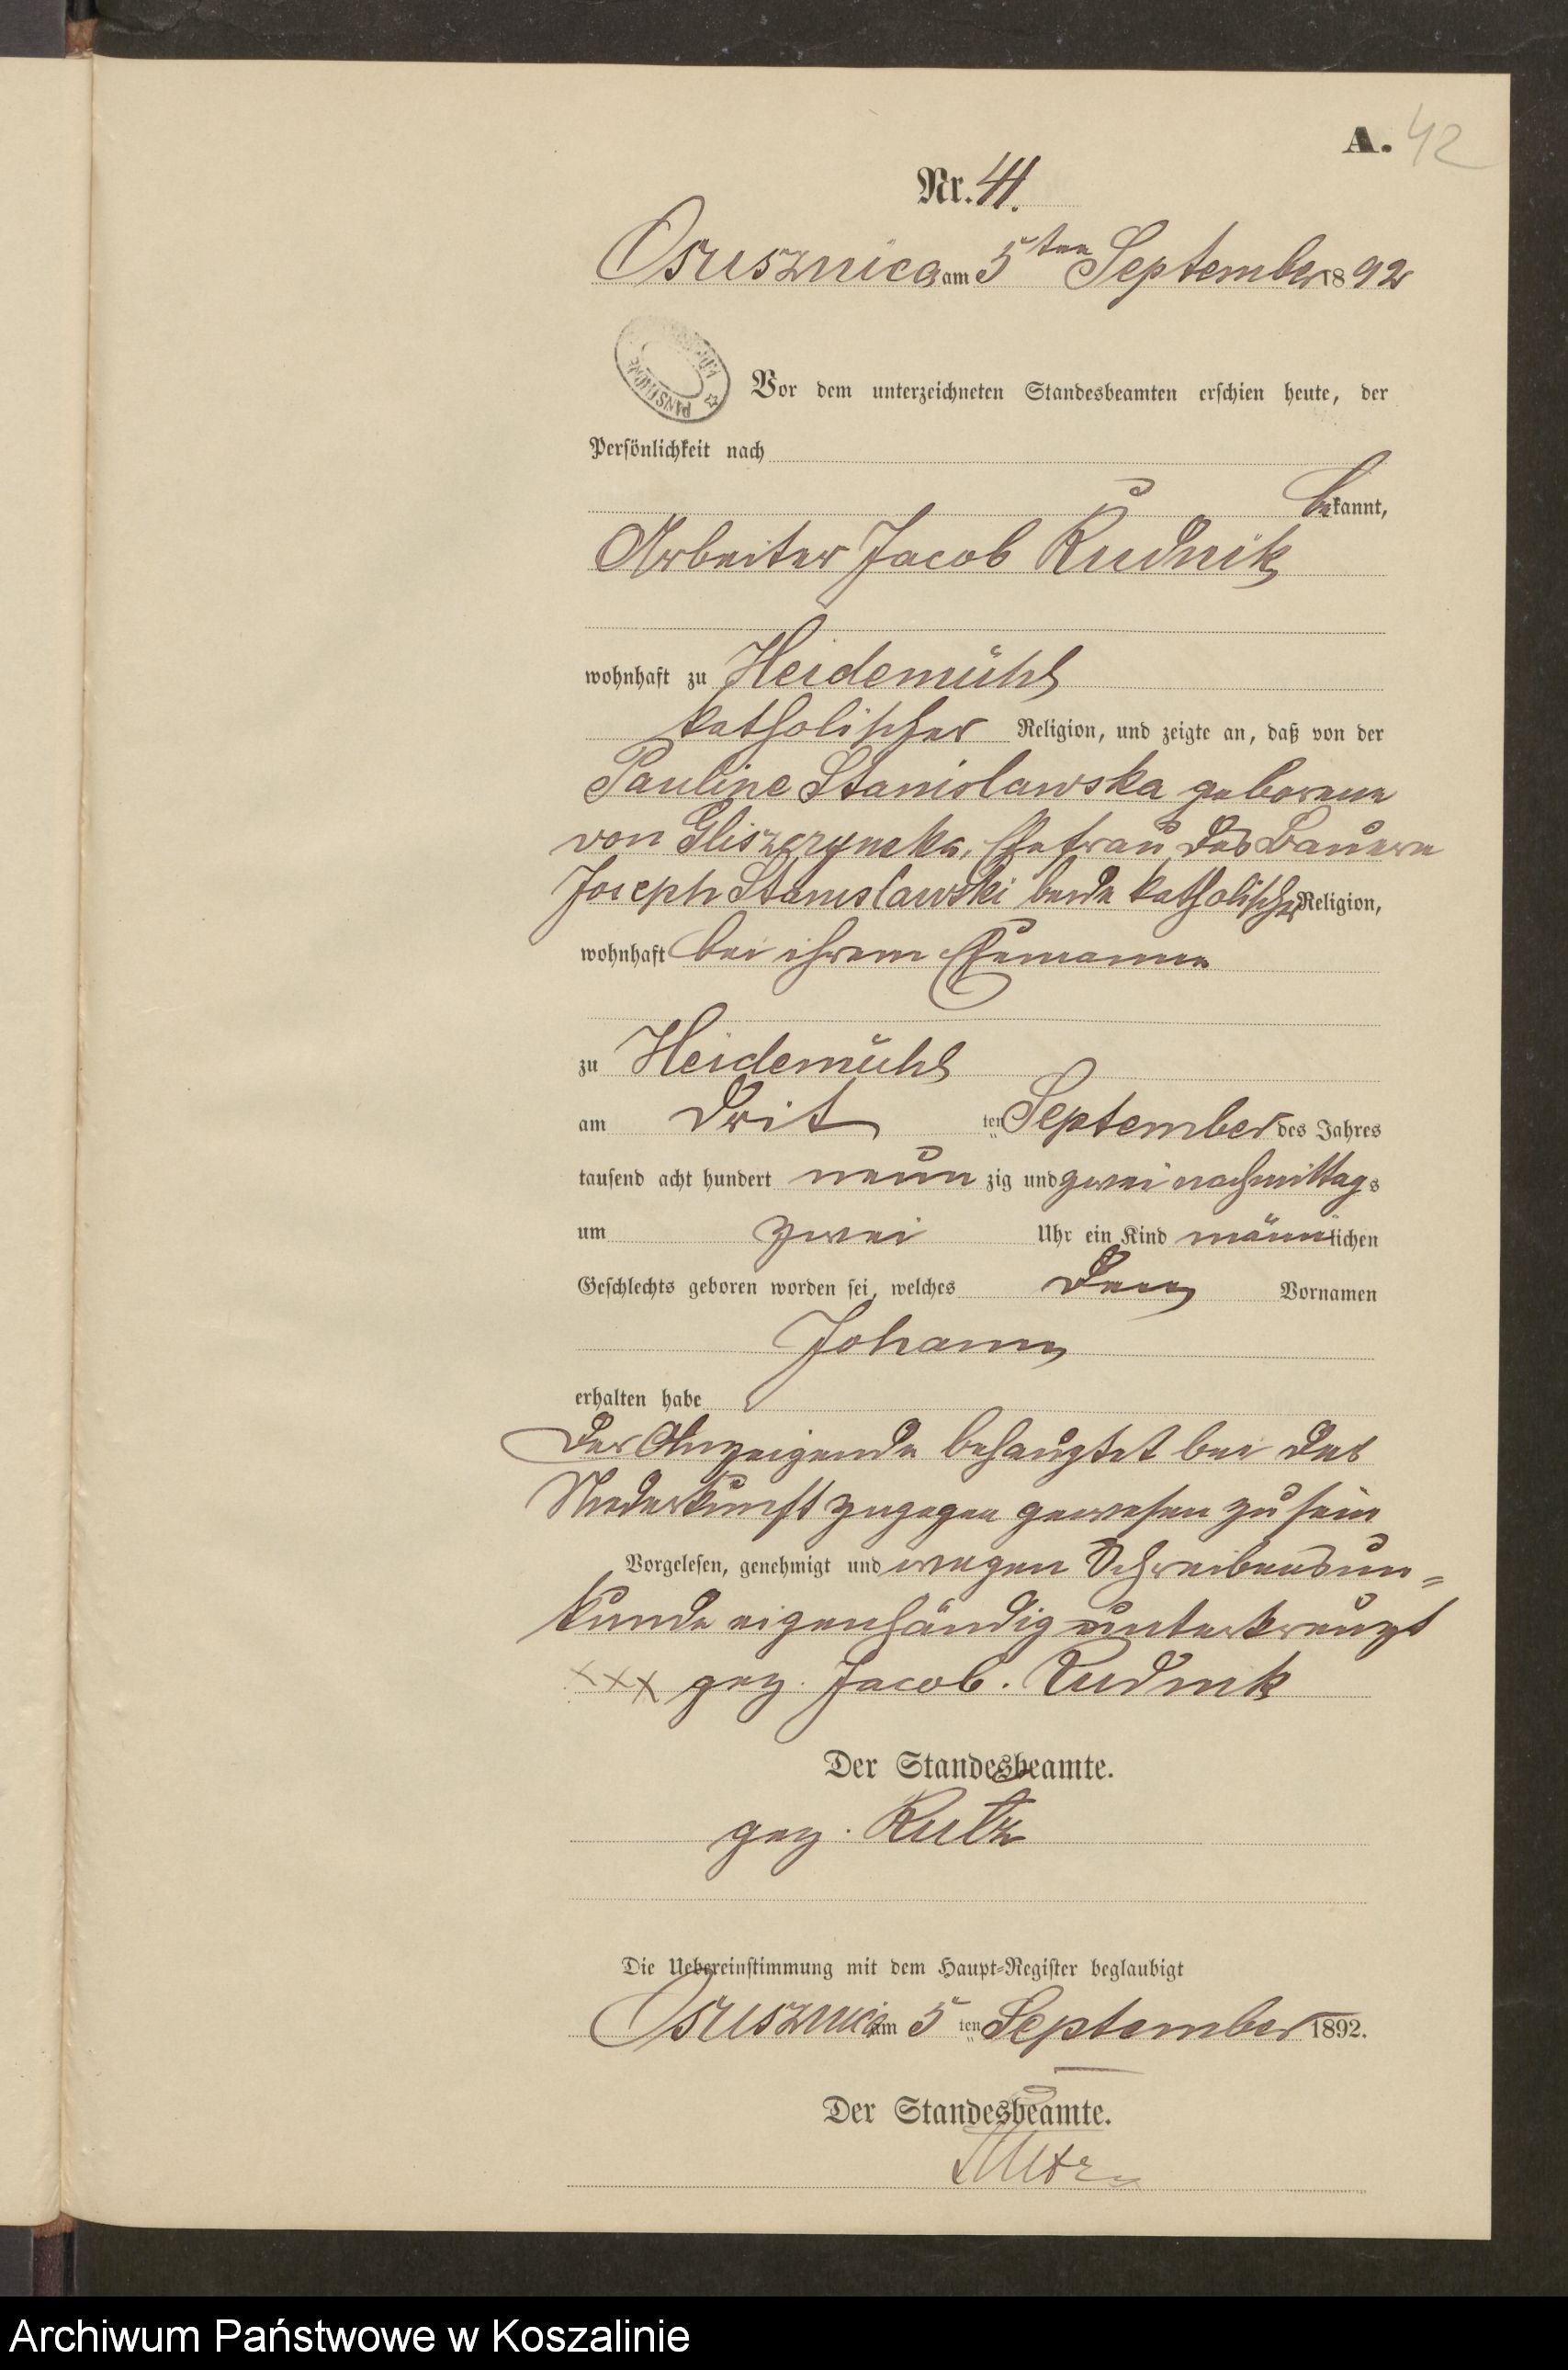 A. 42
Nr. 41.
Osusznica am 5ten September 1892
Vor dem unterzeichneten Standesbeamten erschien heute, der
Persönlichkeit nach
bekannt,
Arbeiter Jacob Rudnik
wohnhaft zu Heidemühl
katholischer Religion, und zeigte an, daß von der
Pauline Stanislawska geborene
von Gliszczynska, Ehefrau des Bauern
Joseph Stanislawski beide katholischer Religion,
wohnhaft bei ihrem Ehemanne
zu Heidemühl
am drit ten September des Jahres
tausend acht hundert neun zig und zwei nachmittags
um zwei Uhr ein Kind männlichen
Geschlechts geboren worden sei, welches den Vornamen
Johann
erhalten habe
Der Anzeigende behauptet bei der
Niederkunft zugegen gewesen zu sein
Vorgelesen, genehmigt und wegen Schreibensun=
kunde eigenhändig unterkreuzt
xxx gez. Jacob. Rudnik
Der Standesbeamte.
gez. Kutz
Die Uebereinstimmung mit dem Haupt=Register beglaubigt
Osusznica am 5 ten September 1892.
Der Standesbeamte.
Archiwum Państwowe w Koszalinie